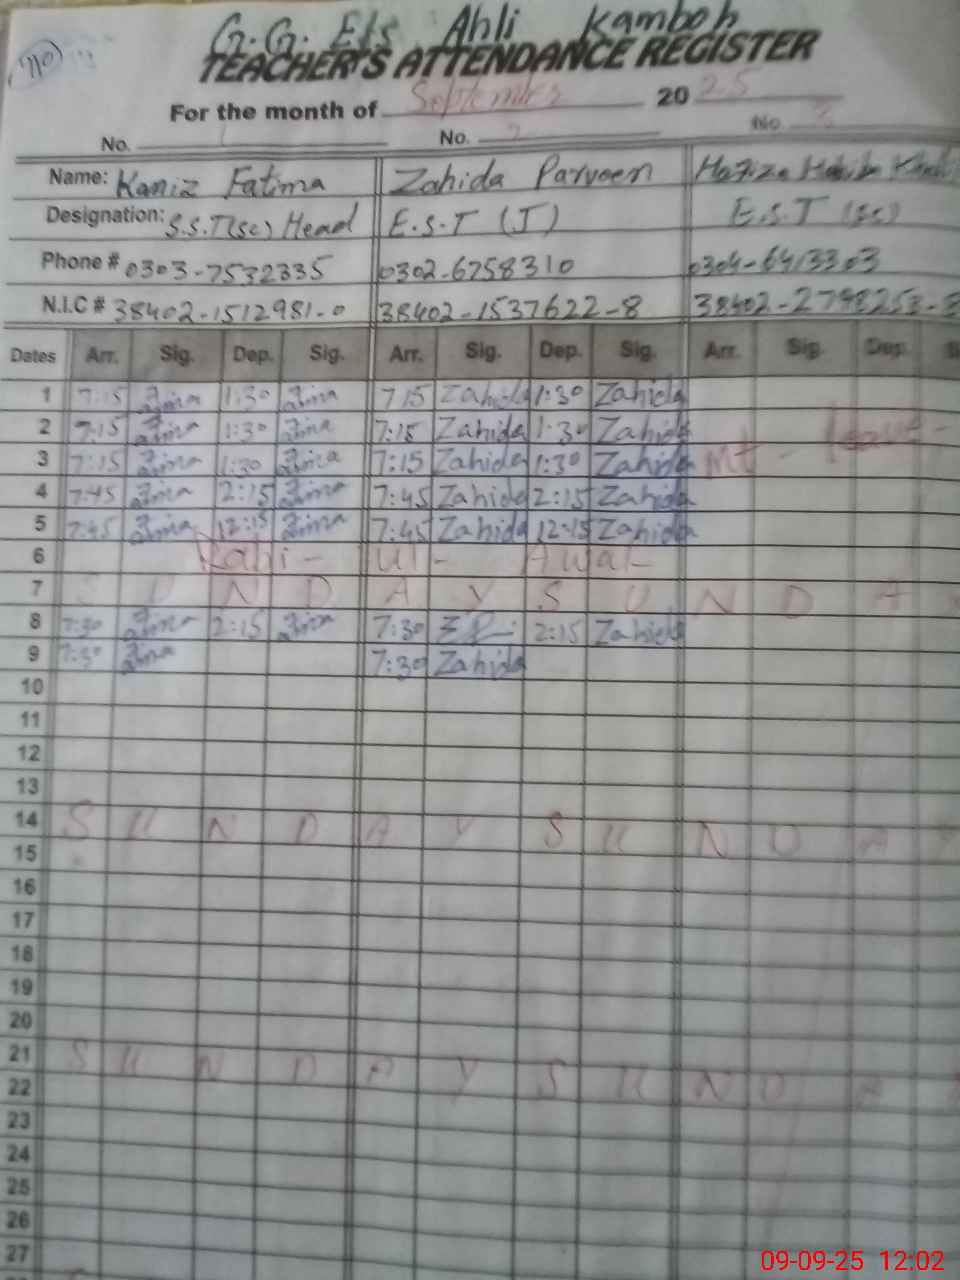 G.G. Els Ahli Kamboh
TEACHER'S ATTENDANCE REGISTER
For the month of September 2025
No. 1 No. 2 No. 3
Name: Kaniz Fatima Zahida Parveen Hafiza
Designation: S.S.T(sc) Head E.S.T (J) E.S.T (sc)
Phone # 0303-7532335 0302-6758310 0304-6413303
N.I.C # 38402-1512981-0 38402-1537622-8 38402-2798253-
Dates Arr. Sig. Dep. Sig. Arr. Sig. Dep. Sig. Arr. Sig. Dep. S
1 7:15 1:30 7:15 Zahida 1:30 Zahida
2 7:15 1:30 7:15 Zahida 1:30 Zahida
3 7:15 1:30 7:15 Zahida 1:30 Zahida Mt - leave -
4 7:45 2:15 7:45 Zahida 2:15 Zahida
5 7:45 12:15 7:45 Zahida 12:15 Zahida
6 Rabi - ul - Awal
7 S U N D A Y S U N D A
8 7:30 2:15 7:30 2:15 Zahida
9 7:30 7:30 Zahida
10
11
12
13
14 S U N D A Y S U N D A Y
15
16
17
18
19
20
21 S U N D A Y S U N D A
22
23
24
25
26
27
09-09-25 12:02